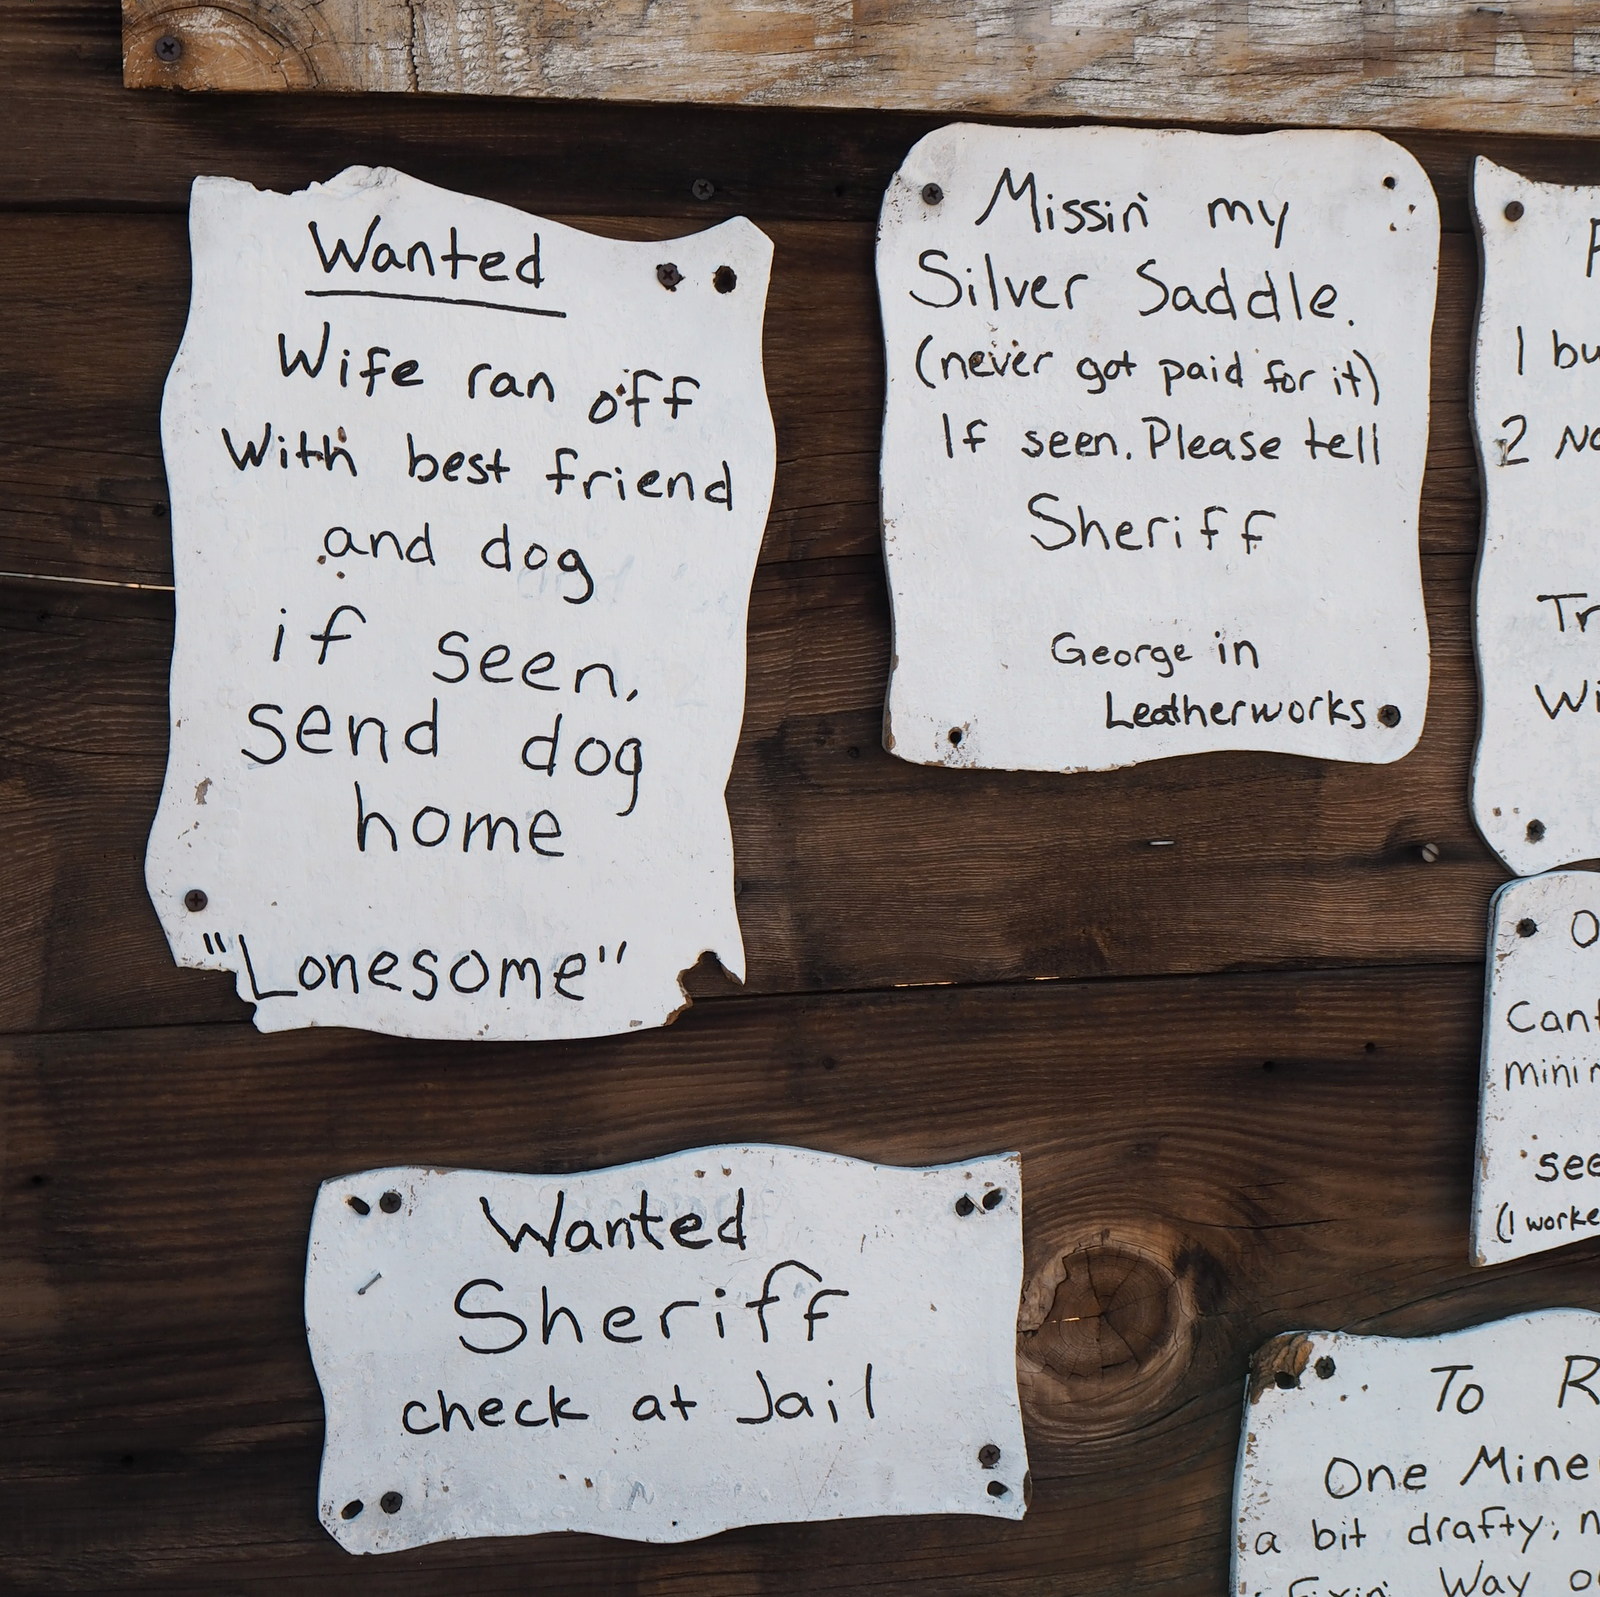 Wanted
Wife ran off
With best friend
and dog
if seen,
send dog
home
"Lonesome"
Missin' my
Silver Saddle.
(never got paid for it)
If seen. Please tell
Sheriff
George in
Leatherworks
Wanted
Sheriff
check at Jail
1
2
To
One
a bit drafty;
Fixin' Way
(I